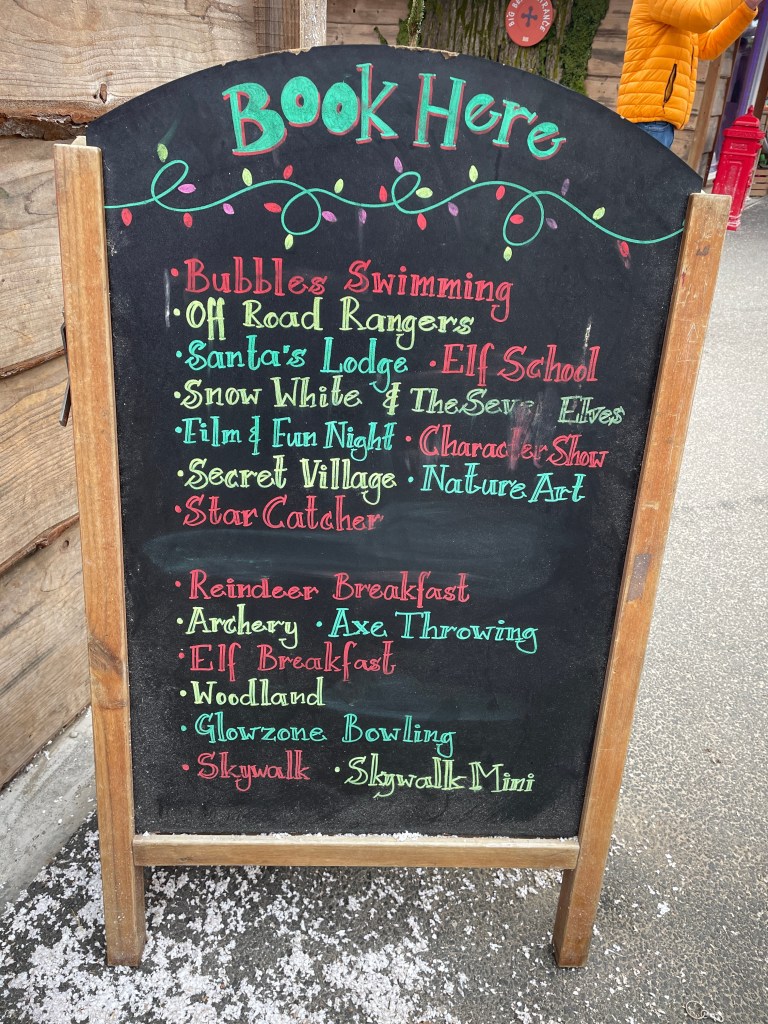 BIG BA
RANCE
Book Here
· Bubbles Swimming
· Off Road Rangers
· Santa's Lodge · Elf School
· Snow White & The Seve Elves
· Film & Fun Night · Character Show
· Secret Village · Nature Art
· Star Catcher
· Reindeer Breakfast
· Archery · Axe Throwing
· Elf Breakfast
· Woodland
· Glowzone Bowling
· Skywalk · Skywalk Mini